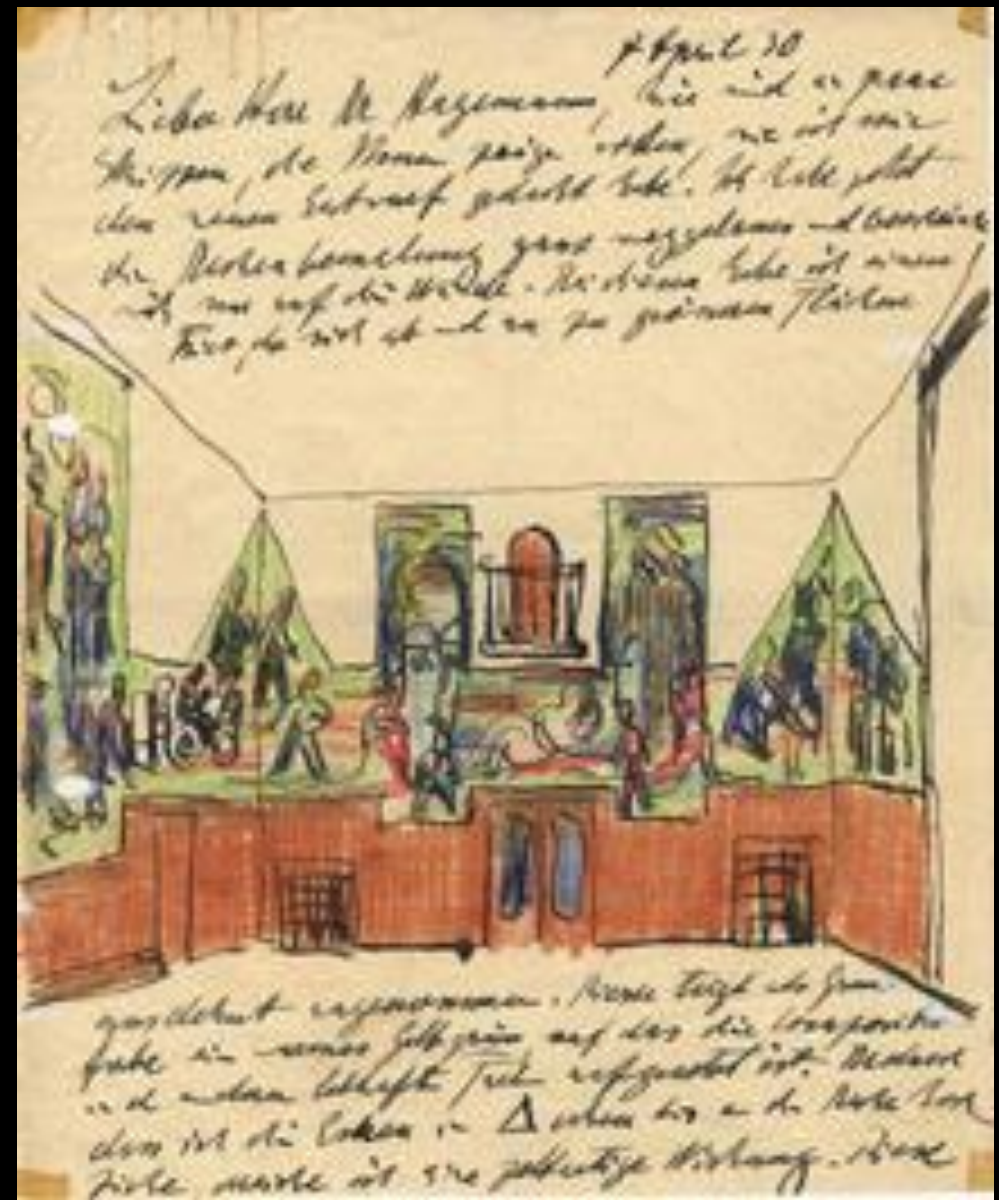 7 April 30
Lieber Herr Dr Hagemann, hie sind ein paar
Skizzen, die Ihnen zeigen sollen, wie ich mir
den neuen Entwurf gedacht habe. Ich habe jetzt
die Deckenbemalung ganz weggelassen und beschränke
mich nur auf die Wände. An diesen habe ich einen
Fries, der sich ab und an zu größeren Flächen
ausdehnt angenommen. Dieser trägt als Grund
farbe ein Gelbgrün auf das die Composition
in andern lebhaften aufgesetzt ist. Dadurch
dass ich die Ecken in Δ oben bis an die Decke hoch
ziehe ich eine Wirkung. Diese